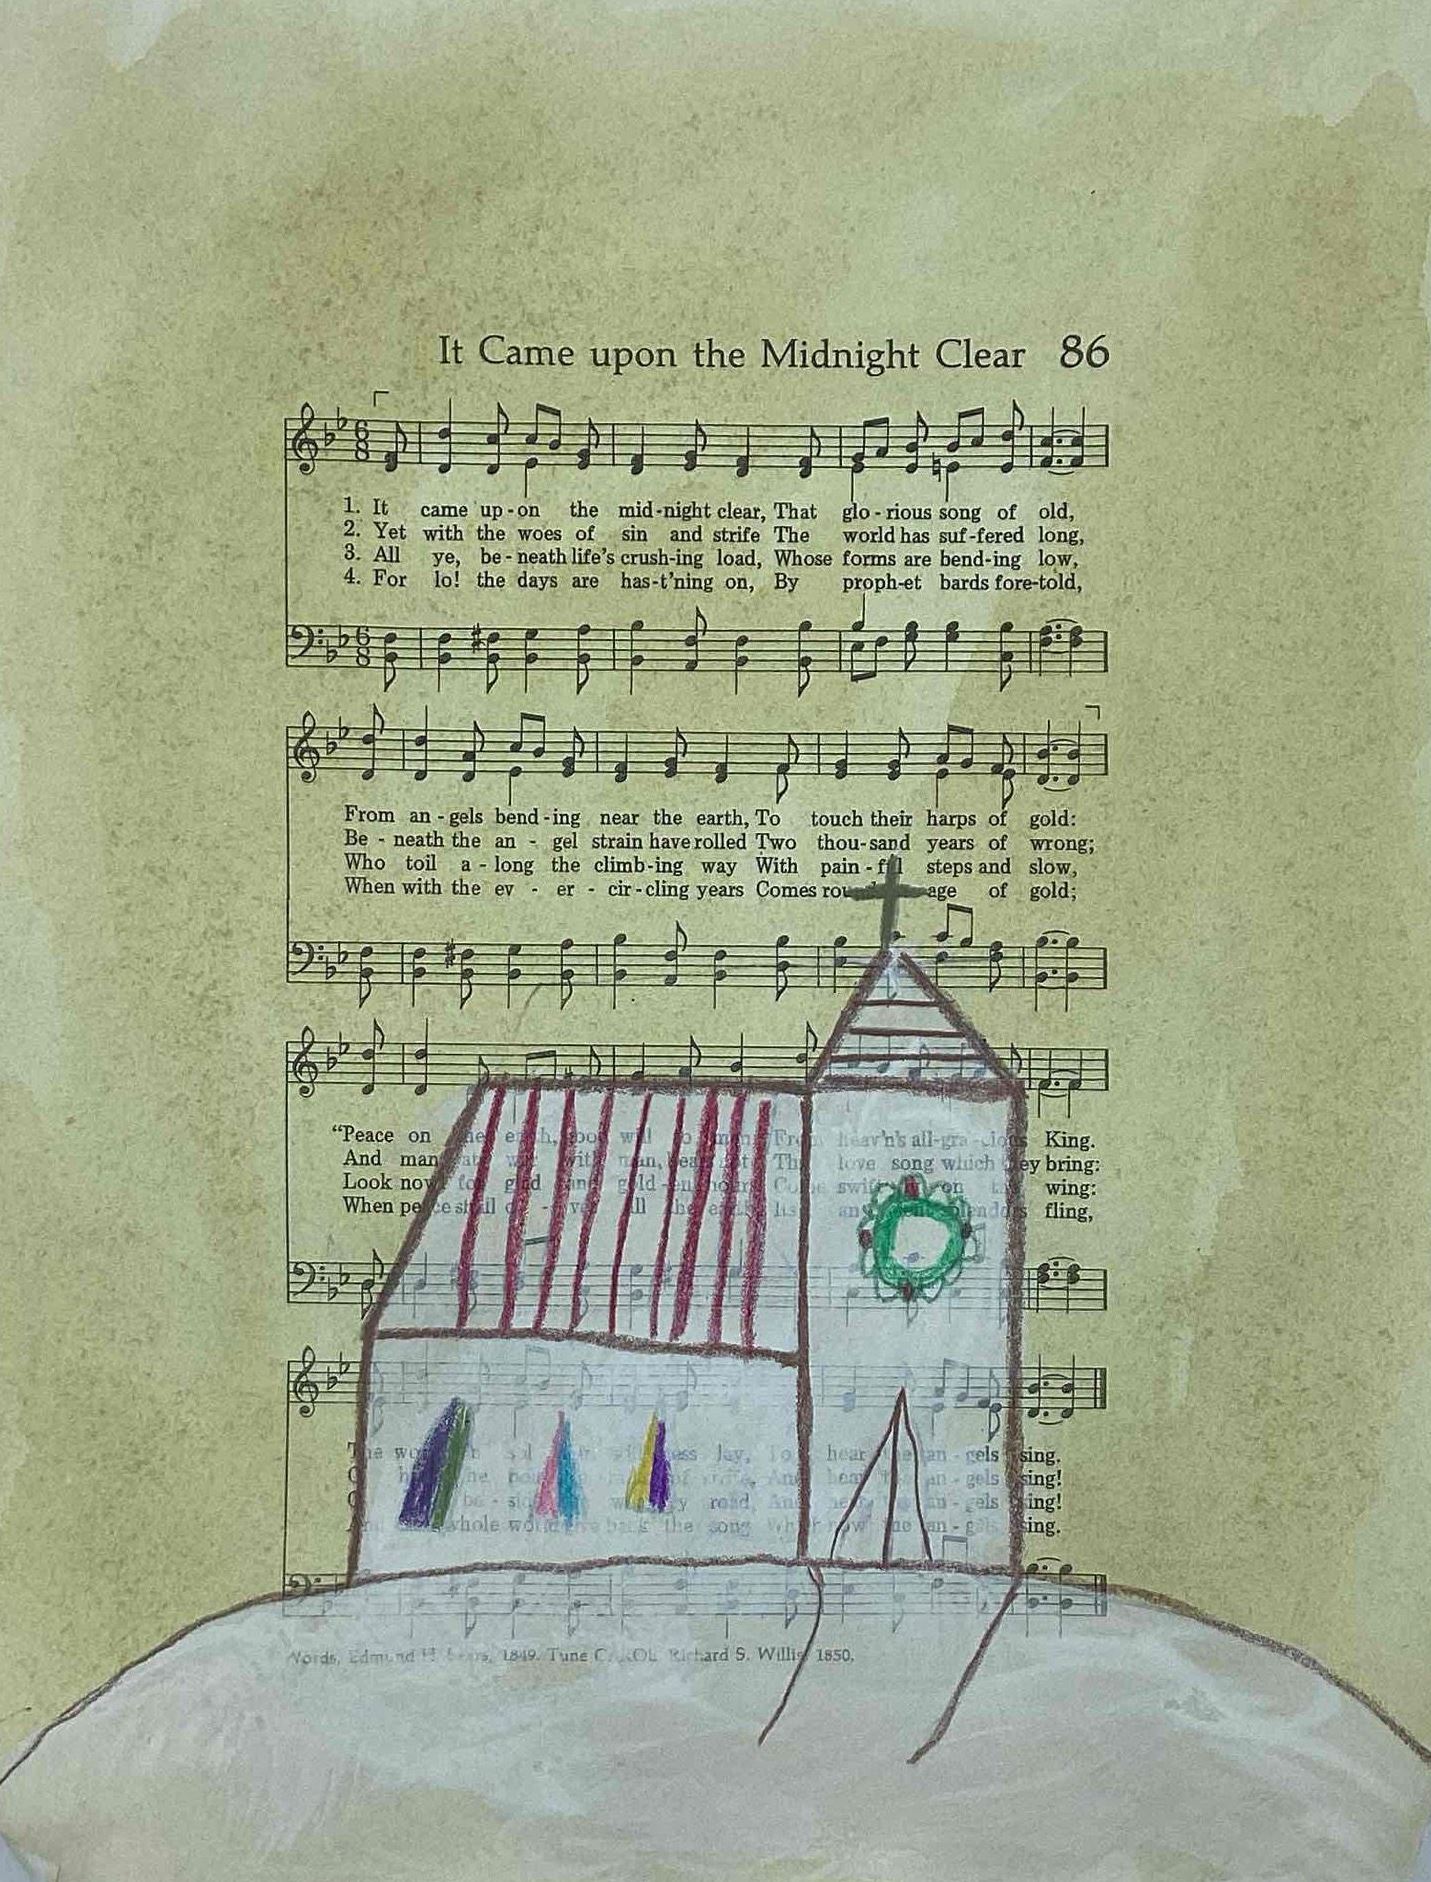 It Came upon the Midnight Clear 86
1. It came up-on the mid-night clear, That glo-rious song of old,
2. Yet with the woes of sin and strife The world has suf-fered long,
3. All ye, be-neath life's crush-ing load, Whose forms are bend-ing low,
4. For lo! the days are has-t'ning on, By proph-et bards fore-told,
From an-gels bend-ing near the earth, To touch their harps of gold:
Be-neath the an-gel strain have rolled Two thou-sand years of wrong;
Who toil a-long the climb-ing way With pain-ful steps and slow,
When with the ev-er-cir-cling years Comes age of gold;
"Peace on From heav'n's all-gra-cious King.
And man, with man, The love song which they bring:
Look now for glad and gold-en hours Come on the wing:
When peace shall all the earth fling,
To hear the an-gels sing.
And hear the an-gels sing!
road, And hear the an-gels sing!
whole world give back the song Which now the an-gels sing.
Words, Edmund H. Sears, 1849. Tune CAROL Richard S. Willis, 1850.